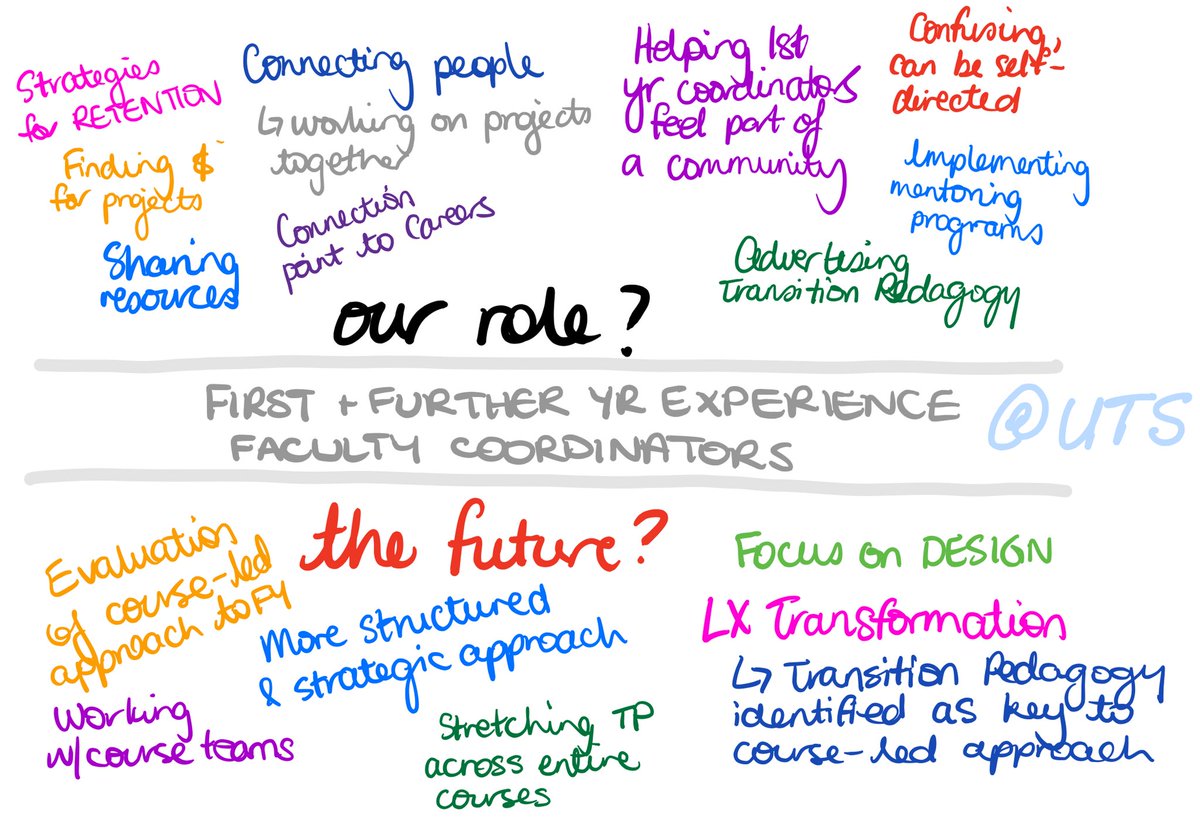 Strategies
for RETENTION
Finding $
for projects
Sharing
resources
Connecting people
↳ working on projects
together
Connection
point to Careers
Helping 1st
yr coordinators
feel part of
a community
Confusing,
can be self-
directed
Implementing
mentoring
programs
Advertising
Transition Pedagogy
our role?
FIRST + FURTHER YR EXPERIENCE
FACULTY COORDINATORS
@UTS
the future?
Evaluation
of course-led
approach to FY
More structured
& strategic approach
Working
w/course teams
Stretching TP
across entire
courses
Focus on DESIGN
LX Transformation
↳ Transition Pedagogy
identified as key to
course-led approach